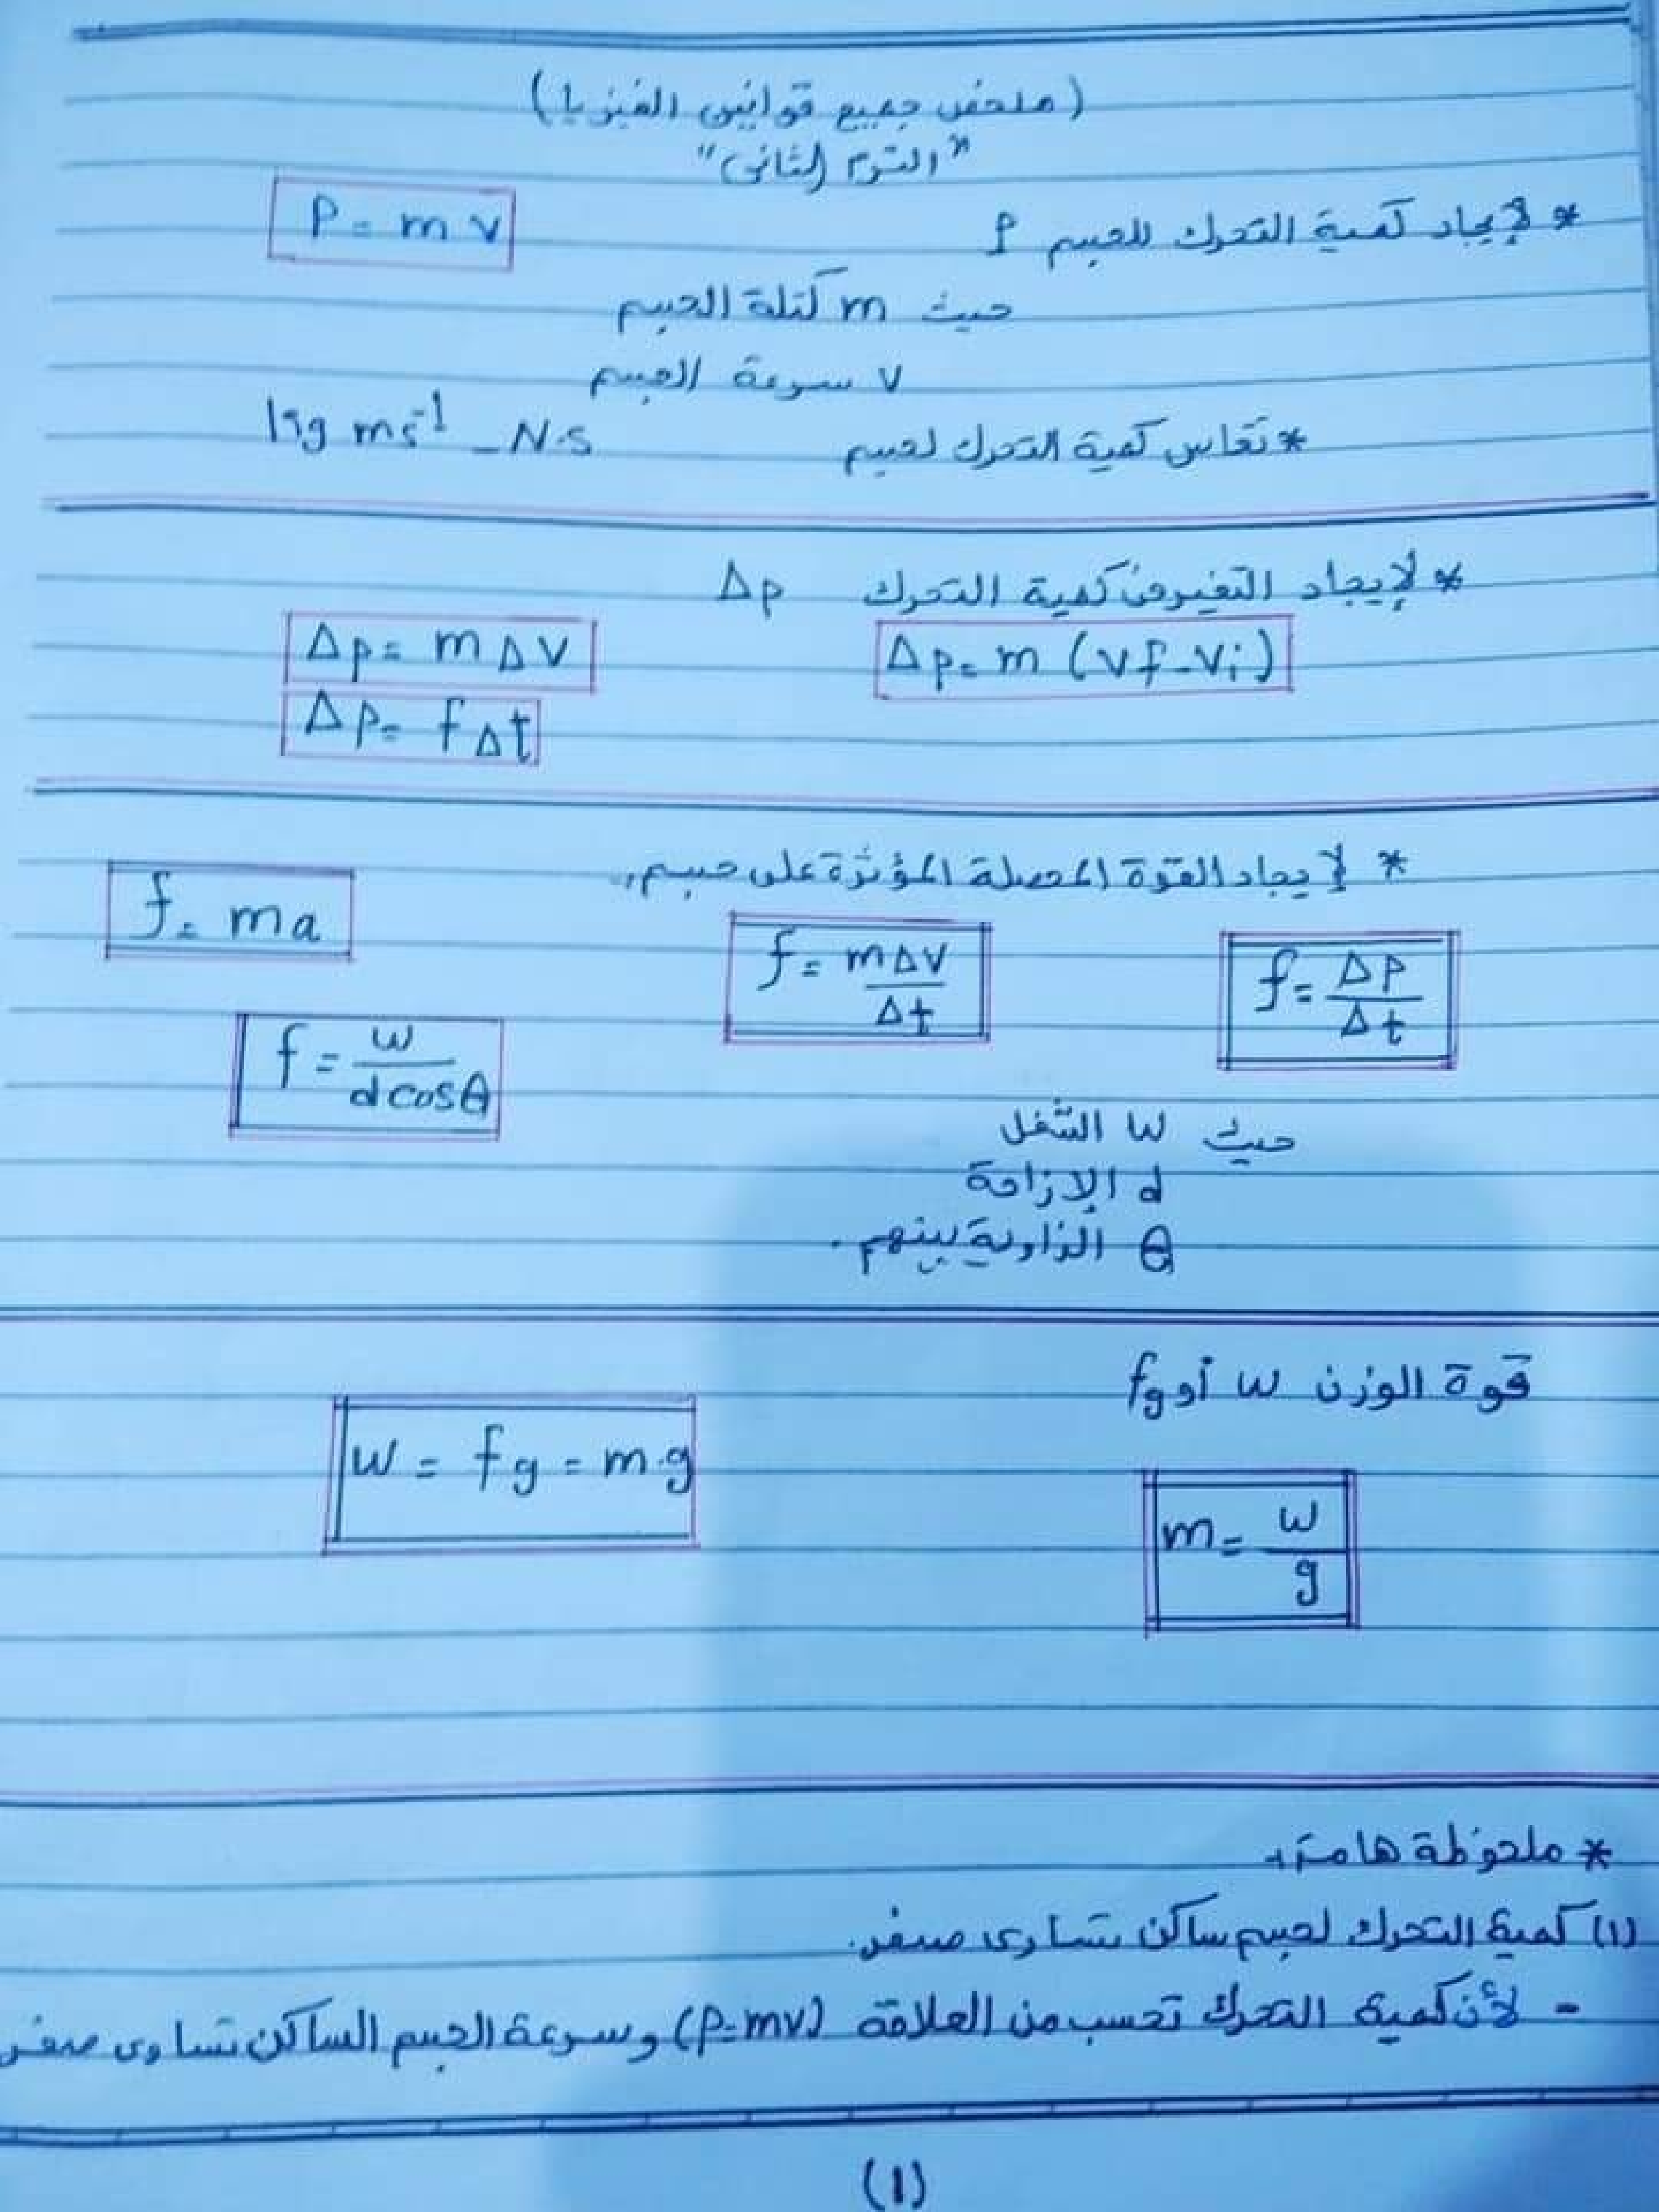 (ملخص جميع قوانين الفيزيا)
"الترم الثانى"
* لإيجاد كمية التحرك للجسم P
P = m v
حيث m كتلة الجسم
v سرعة الجسم
* تقاس كمية التحرك لجسم kg ms⁻¹ - N.s
* لإيجاد التغير فى كمية التحرك Δp
Δp = m (vf - vi)
Δp = m Δv
Δp = f Δt
* لإيجاد القوة المحصلة المؤثرة على جسم
f = Δp / Δt
f = mΔv / Δt
f = ma
f = w / d cosθ
حيث w الشغل
d الإزاحة
θ الزاوية بينهم .
قوة الوزن w أو fg
w = fg = m.g
m = w / g
* ملحوظة هامة
(1) كمية التحرك لجسم ساكن تساوى صفر.
- لأن كمية التحرك تحسب من العلاقة (p=mv) وسرعة الجسم الساكن تساوى صفر
(1)